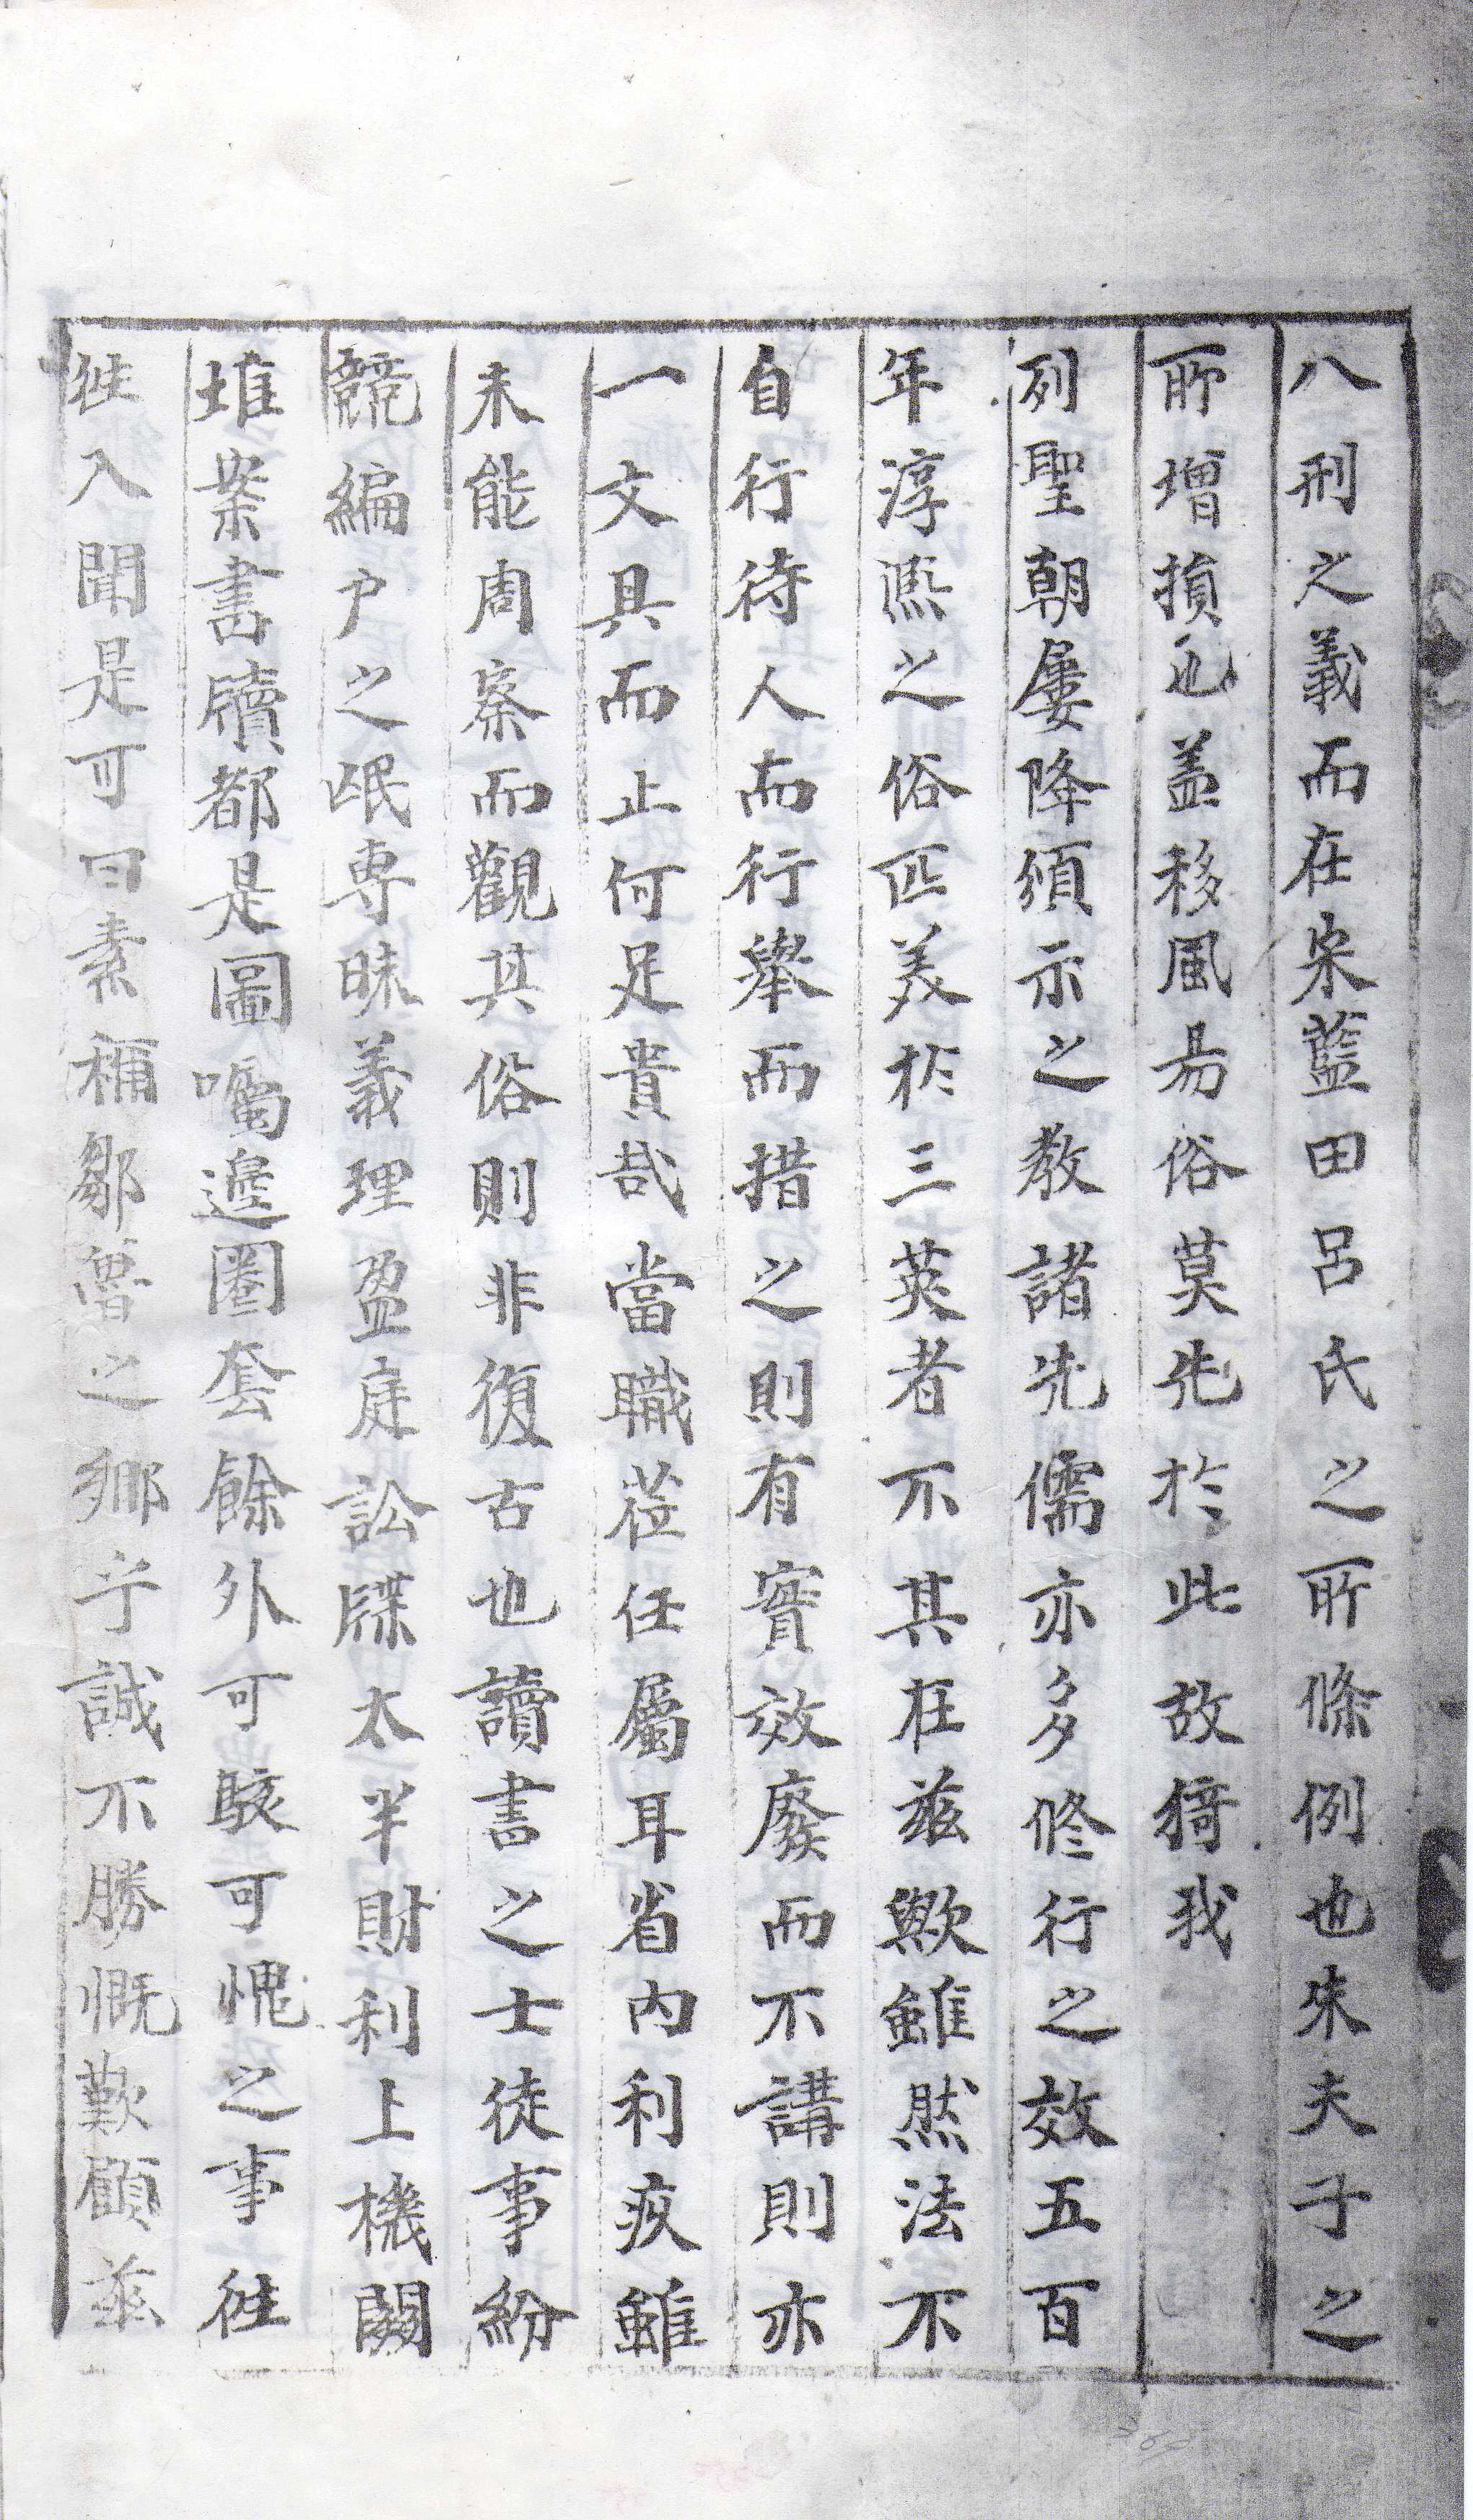 八刑之義而在宋藍田呂氏之所條例也朱夫子之
所增損也盖移風易俗莫先於此故猗我
列聖朝屢降頒示之教諸先儒亦多修行之效五百
年淳熈之俗匹美於三英者不其在兹歟雖然法不
自行待人而行擧而措之則有實效廢而不講則亦
一文具而止何足貴哉當職莅任屬耳省內利疚雖
未能周察而觀其俗則非復古也讀書之士徒事紛
競編户之氓専昧義理盈庭訟牒太半財利上機關
堆案書牘都是圖囑邊圈套餘外可駭可愧之事徃
徃入聞是可曰素稱鄒魯之鄉乎誠不勝慨歎顧兹